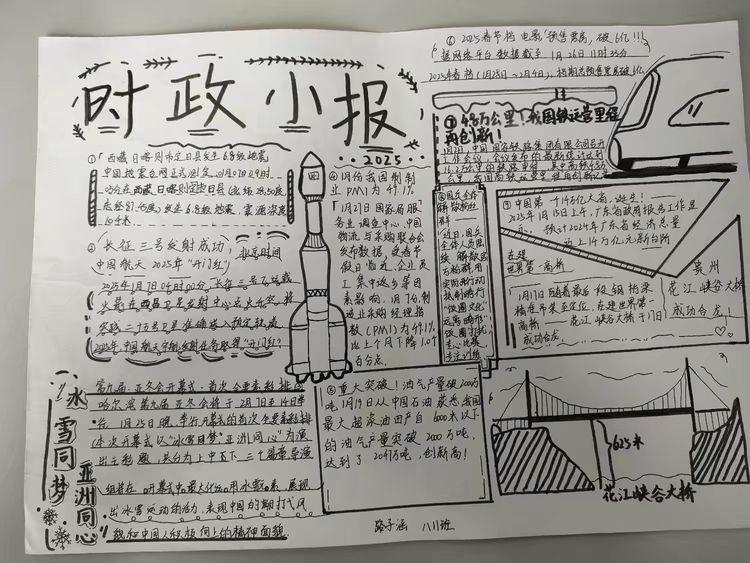 时政小报
2025
①「西藏日喀则市定日县发生6.8级地震
中国地震台网正式测定:01月07日09时
05分在西藏日喀则定日县(北纬28.50度
东经87.45度)发生6.8级地震,震源深度
10千米
②长征三号发射成功!
中国航天2025年"开门红"
2025年1月7日04时00分,长征三号乙运载
火箭在西昌卫星发射中心点火升空,将
实践二十五号卫星准确送入预定轨道
2025年中国航天宇航发射任务取得"开门红"
冰雪同梦
亚洲同心
第九届亚冬会开幕式·首次全要素彩排
哈尔滨第九届亚冬会将于2月7日至14日举
行,1月25日晚,举行开幕式的首次全要素彩排
(本次开幕式以"冰雪同梦亚洲同心"为演
出主题,共分为上中下三个篇章导演
组将在开幕式中最大化运用冰雪元素,展现
出冰雪运动的活力,表现中国的朝打大风
貌和中国人积极向上的精神面貌
④1月份我国制制
业PMI为49.1%
「1月27日国家局服
务业调查中心,中国
物流与采购联合会
发布数据,受春节
假日临近,企业员
工集中返乡等因
素影响,1月份制
造业采购经理指
数(PMI)为49.1%
比上个月下降1.0个
百分点.
⑤重大突破!油气产量破2000万
吨,1月19日从中国石油获悉,我国
最大超深油田产自6000米以下
的油气产量突破2000万吨,
达到了2047万吨,创新高!
⑥2025春节档电影预售票房,破6亿!!!
据网络平台数据截至1月26日11时35分
2025年春档(1月28日~2月4日),档期总预售票房破6亿
⑦4.8万公里!我国铁运营里程
再创新!
1月2日,中国国家铁路集团有限公司召开
工作会议,会议发布的最新统计达到
近日,国乒
全体人员思
⑨中国第一个14万亿大省,诞生!
2025年1月15日上午,广东省政府报告工作显
示,预计2024年广东省经济总量
为上14万亿元新台阶
在建
世界第一高桥
贵州
花江峡谷大桥
成功合龙!
1月17日随着最后一段钢桁梁
精准吊装至定位,在建世界第一
高桥——花江峡谷大桥于17日
成功合龙.
625米
花江峡谷大桥
路子涵 八11班